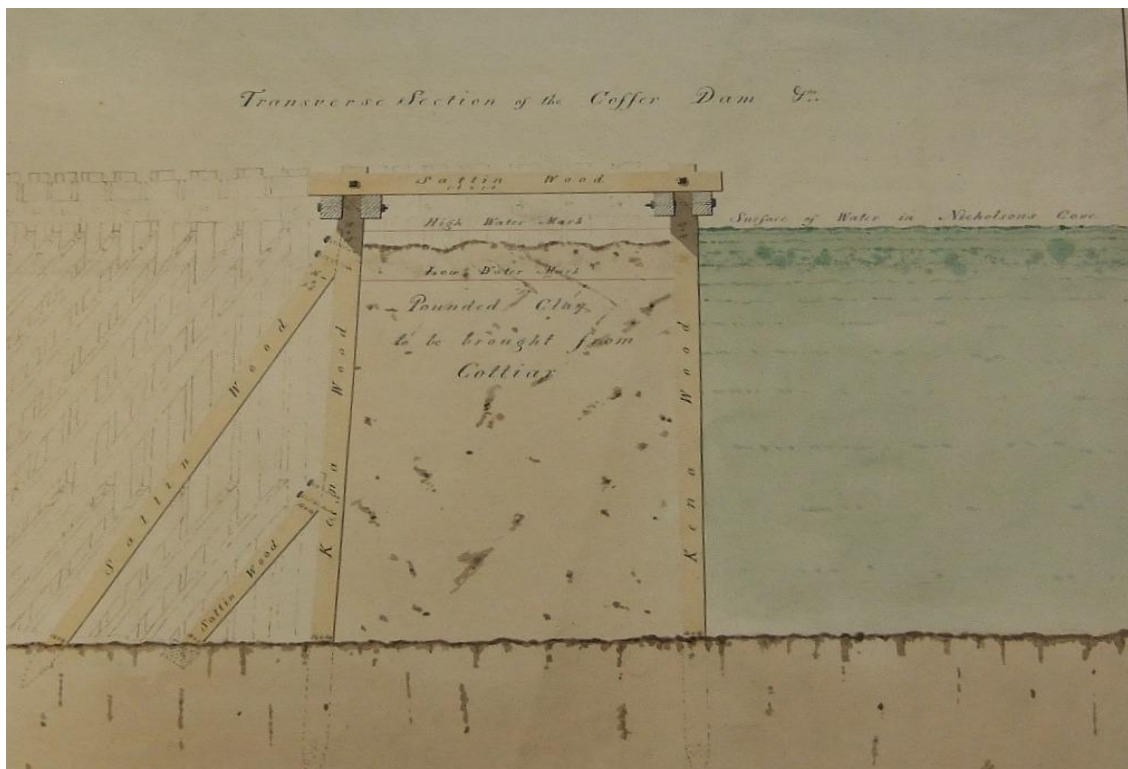 Transverse Section of the Coffer Dam &c.
Sattin Wood
High Water Mark
Surface of Water in Nicholsons Cove
Low Water Mark
Pounded Clay
to be brought from
Cottiar
Sattin Wood
Kena Wood
Kena Wood
Sattin Wood